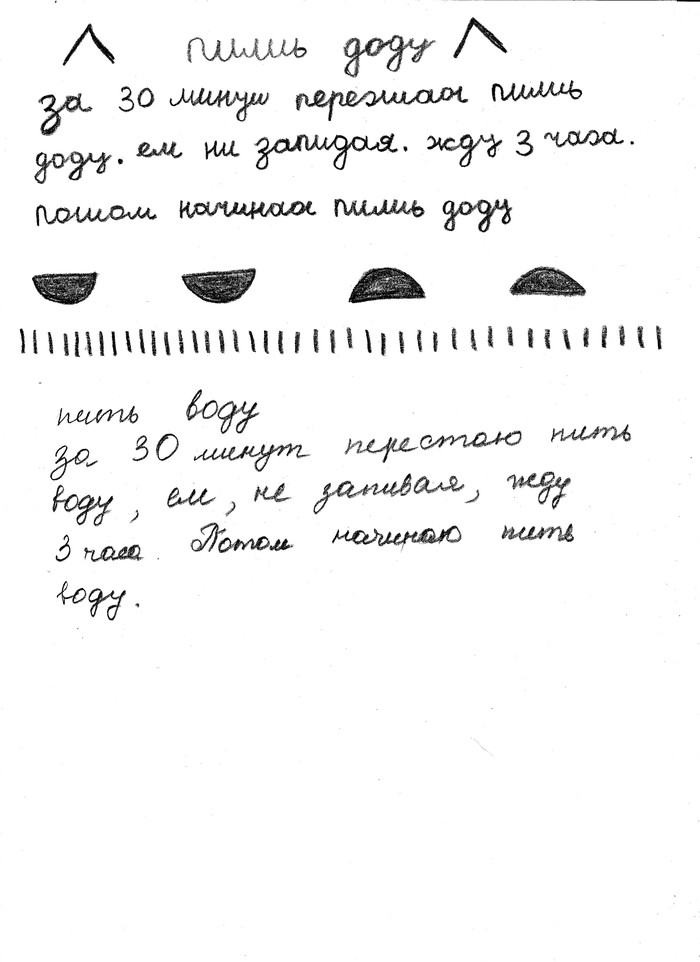 пилиь доду
за 30 минуш перешаая пилиь
доду. ем ни запидая. жду 3 часа.
пошом начинаа пилиь доду
пить воду
за 30 минут перестаю пить
воду, ем, не запивая, жду
3 часа. Потом начинаю пить
воду.